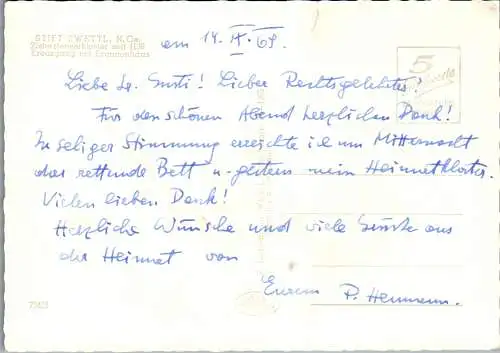 STIFT ZWETTL, N.Oe.
Zisterzienserkloster seit 1138
Kreuzgang mit Brunnenhaus
am 14. IX. 69.
Liebe Fr. Gusti! Lieber Rechtsgelehrter!
Für den schönen Abend herzlichen Dank!
In seliger Stimmung erreichte ich um Mitternacht
das rettende Bett u. gestern mein Heimatkloster.
Vielen lieben Dank!
Herzliche Wünsche und viele Grüsse aus
der Heimat von
Eurem P. Hermann.
5